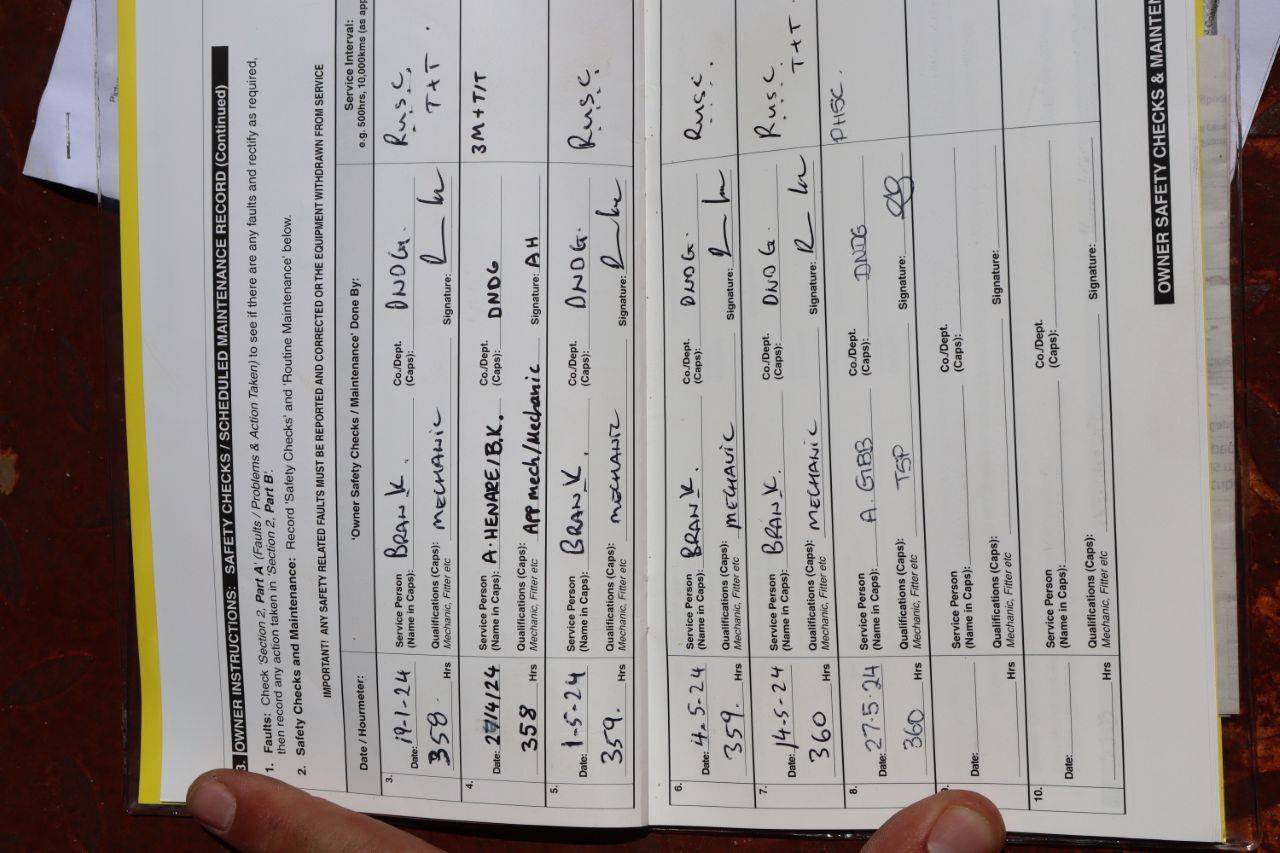 3. OWNER INSTRUCTIONS: SAFETY CHECKS / SCHEDULED MAINTENANCE RECORD (Continued)
1. Faults: Check 'Section 2, Part A' (Faults / Problems & Action Taken) to see if there are any faults and rectify as required,
then record any action taken in 'Section 2, Part B'.
2. Safety Checks and Maintenance: Record 'Safety Checks' and 'Routine Maintenance' below.
IMPORTANT! ANY SAFETY RELATED FAULTS MUST BE REPORTED AND CORRECTED OR THE EQUIPMENT WITHDRAWN FROM SERVICE
Date / Hourmeter: 'Owner Safety Checks / Maintenance' Done By: Service Interval:
e.g. 500hrs, 10,000kms (as app
3. Date: 19-1-24 Service Person (Name in Caps): BRAN K. Co./Dept. (Caps): DNDG. R.U.S.C.
358. Hrs Qualifications (Caps): Mechanic, Fitter etc MECHANIC Signature: T+T.
4. Date: 27/4/24 Service Person (Name in Caps): A.HENARE/B.K. Co./Dept. (Caps): DNDG 3M+T/T
358 Hrs Qualifications (Caps): Mechanic, Fitter etc APP mech/Mechanic Signature: AH
5. Date: 1-5-24 Service Person (Name in Caps): BRAN K. Co./Dept. (Caps): DNDG. R.U.S.C.
359. Hrs Qualifications (Caps): Mechanic, Fitter etc MECHANIC Signature:
6. Date: 4-5-24 Service Person (Name in Caps): BRAN K. Co./Dept. (Caps): DNDG. R.U.S.C.
359. Hrs Qualifications (Caps): Mechanic, Fitter etc MECHANIC Signature:
7. Date: 14-5-24 Service Person (Name in Caps): BRAN K. Co./Dept. (Caps): DNDG. R.U.S.C.
360 Hrs Qualifications (Caps): Mechanic, Fitter etc MECHANIC Signature: T+T.
8. Date: 27.5.24 Service Person (Name in Caps): A. GIBB Co./Dept. (Caps): DNDG PHSC.
360 Hrs Qualifications (Caps): Mechanic, Fitter etc TSP Signature:
9. Date: Service Person (Name in Caps): Co./Dept. (Caps):
Hrs Qualifications (Caps): Mechanic, Fitter etc Signature:
10. Date: Service Person (Name in Caps): Co./Dept. (Caps):
Hrs Qualifications (Caps): Mechanic, Fitter etc Signature:
OWNER SAFETY CHECKS & MAINTEN